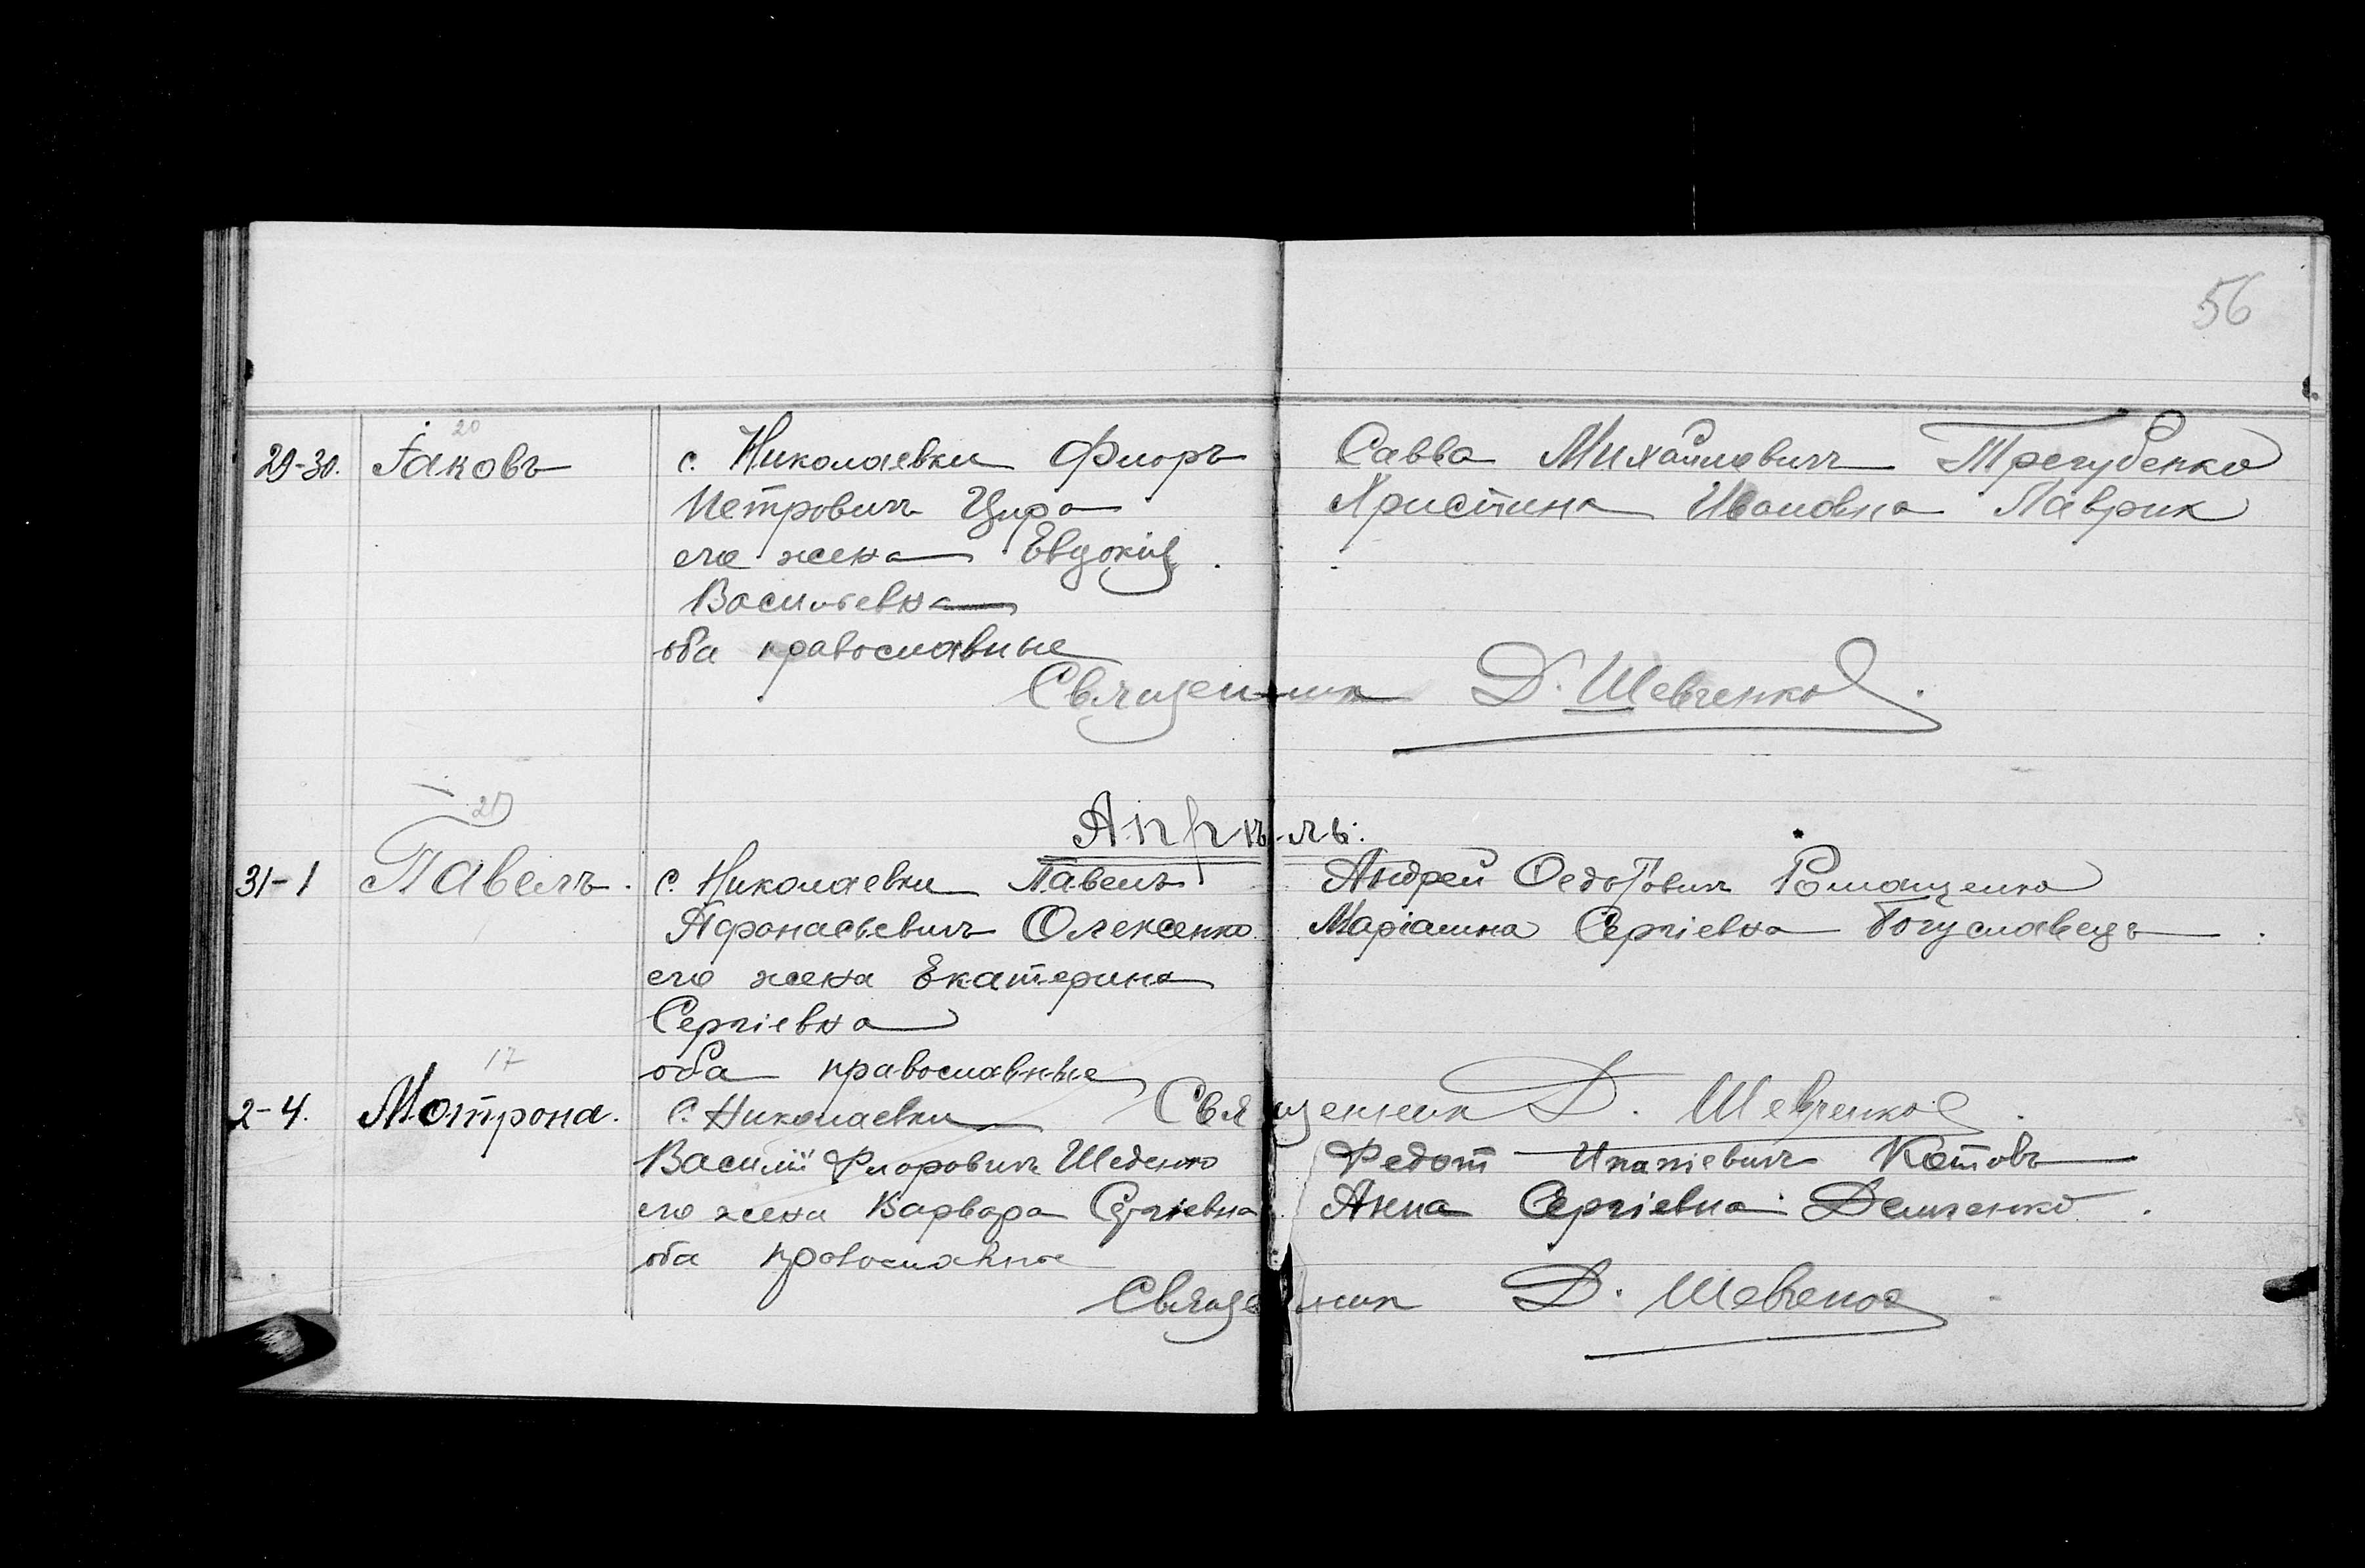 56
20
29-30. Іаковъ с. Николаевки Флоръ Савва Михайловичъ Трегубенко
Петровичъ Цира Христина Ивановна Лаврик
его жена Евдокія
Васильевна
оба православные
Священник Д. Шевченко
21
Апрѣль.
31-1 Павелъ. с. Николаевки Павелъ Андрей Федотовичъ
Афонасьевичъ Олексенко Маріанна Сергіевна Богуславецъ
его жена Екатерина
Сергіевна
17
оба православные
Священник Д. Шевченко
2-4. Мотрона. с. Николаевки
Василій Флоровичъ Шеденко Федот Ипатіевичъ Котовъ
его жена Варвара Сергіевна Анна Сергіевна Демченко
оба православные
Священник Д. Шевченко